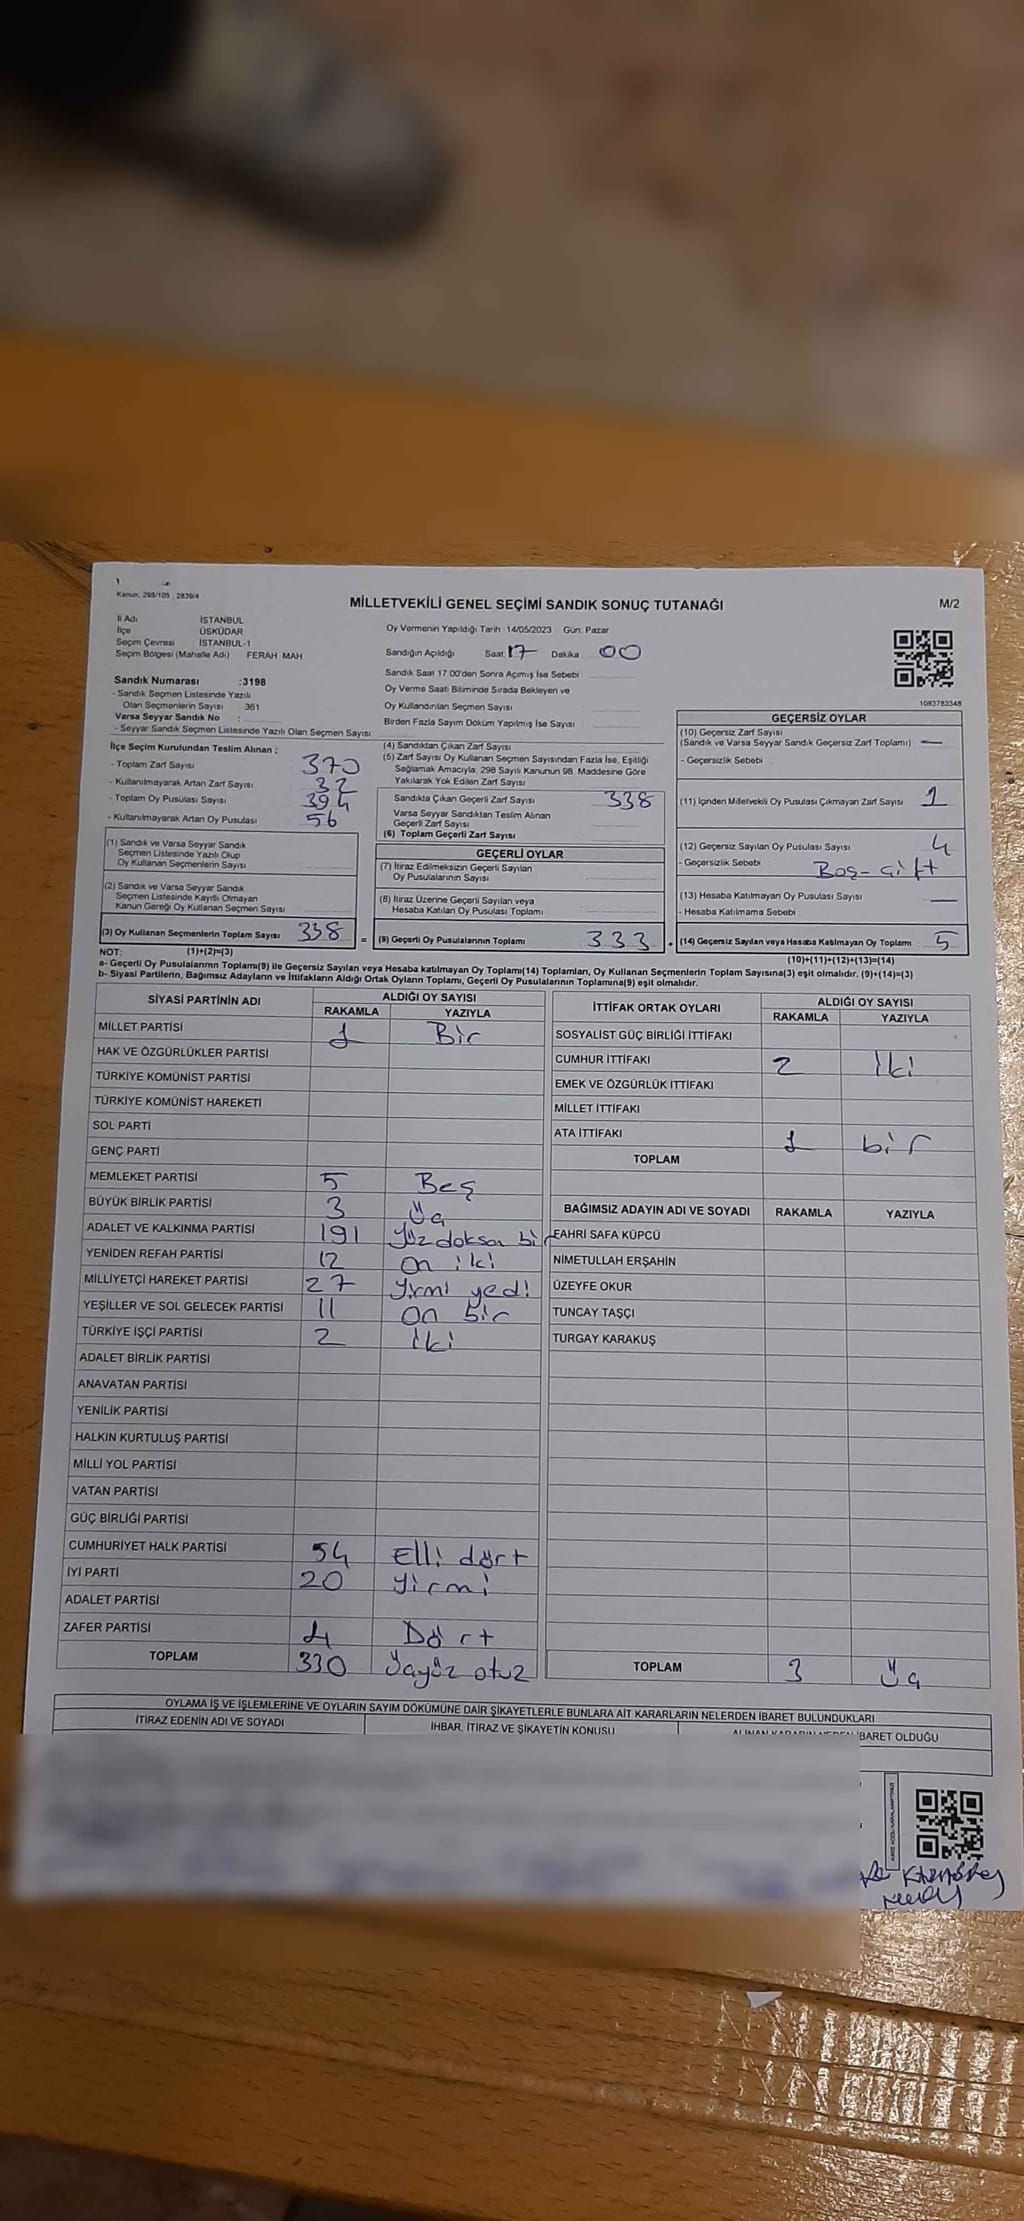 Kanun, 298/105 , 2839/4
MİLLETVEKİLİ GENEL SEÇİMİ SANDIK SONUÇ TUTANAĞI
M/2
İl Adı İSTANBUL
İlçe ÜSKÜDAR
Seçim Çevresi İSTANBUL-1
Seçim Bölgesi (Mahalle Adı) FERAH MAH
Oy Vermenin Yapıldığı Tarih :14/05/2023 Gün: Pazar
Sandığın Açıldığı Saat 17 Dakika 00
Sandık Saat 17:00'den Sonra Açımış İse Sebebi
Oy Verme Saati Bitiminde Sırada Bekleyen ve
Oy Kullandırılan Seçmen Sayısı
Birden Fazla Sayım Döküm Yapılmış İse Sayısı
1083783348
Sandık Numarası :3198
- Sandık Seçmen Listesinde Yazılı
Olan Seçmenlerin Sayısı : 361
Varsa Seyyar Sandık No :
- Seyyar Sandık Seçmen Listesinde Yazılı Olan Seçmen Sayısı
İlçe Seçim Kurulundan Teslim Alınan ;
- Toplam Zarf Sayısı 370
- Kullanılmayarak Artan Zarf Sayısı 32
- Toplam Oy Pusulası Sayısı 394
- Kullanılmayarak Artan Oy Pusulası 56
(1) Sandık ve Varsa Seyyar Sandık
Seçmen Listesinde Yazılı Olup
Oy Kullanan Seçmenlerin Sayısı
(2) Sandık ve Varsa Seyyar Sandık
Seçmen Listesinde Kayıtlı Olmayan
Kanun Gereği Oy Kullanan Seçmen Sayısı
(3) Oy Kullanan Seçmenlerin Toplam Sayısı 338 =
(4) Sandıktan Çıkan Zarf Sayısı
(5) Zarf Sayısı Oy Kullanan Seçmen Sayısından Fazla İse, Eşitliği
Sağlamak Amacıyla: 298 Sayılı Kanunun 98. Maddesine Göre
Yakılarak Yok Edilen Zarf Sayısı
Sandıkta Çıkan Geçerli Zarf Sayısı 338
Varsa Seyyar Sandıktan Teslim Alınan
Geçerli Zarf Sayısı
(6) Toplam Geçerli Zarf Sayısı
GEÇERLİ OYLAR
(7) İtiraz Edilmeksizin Geçerli Sayılan
Oy Pusulalarının Sayısı
(8) İtiraz Üzerine Geçerli Sayılan veya
Hesaba Katılan Oy Pusulası Toplamı
(9) Geçerli Oy Pusulalarının Toplamı 333
GEÇERSİZ OYLAR
(10) Geçersiz Zarf Sayısı
(Sandık ve Varsa Seyyar Sandık Geçersiz Zarf Toplamı) —
- Geçersizlik Sebebi
(11) İçinden Milletvekili Oy Pusulası Çıkmayan Zarf Sayısı 1
(12) Geçersiz Sayılan Oy Pusulası Sayısı 4
- Geçersizlik Sebebi Boş - Çift
(13) Hesaba Katılmayan Oy Pusulası Sayısı —
- Hesaba Katılmama Sebebi
(14) Geçersiz Sayılan veya Hesaba Katılmayan Oy Toplamı 5
NOT: (1)+(2)=(3)
(10)+(11)+(12)+(13)=(14)
a- Geçerli Oy Pusulalarının Toplamı(9) ile Geçersiz Sayılan veya Hesaba katılmayan Oy Toplamı(14) Toplamları, Oy Kullanan Seçmenlerin Toplam Sayısına(3) eşit olmalıdır. (9)+(14)=(3)
b- Siyasi Partilerin, Bağımsız Adayların ve İttifakların Aldığı Ortak Oyların Toplamı, Geçerli Oy Pusulalarının Toplamına(9) eşit olmalıdır.
SİYASİ PARTİNİN ADI ALDIĞI OY SAYISI
RAKAMLA YAZIYLA
MİLLET PARTİSİ 1 Bir
HAK VE ÖZGÜRLÜKLER PARTİSİ
TÜRKİYE KOMÜNİST PARTİSİ
TÜRKİYE KOMÜNİST HAREKETİ
SOL PARTİ
GENÇ PARTİ
MEMLEKET PARTİSİ 5 Beş
BÜYÜK BİRLİK PARTİSİ 3 Üç
ADALET VE KALKINMA PARTİSİ 191 Yüz doksan bir
YENİDEN REFAH PARTİSİ 12 on iki
MİLLİYETÇİ HAREKET PARTİSİ 27 Yirmi yedi
YEŞİLLER VE SOL GELECEK PARTİSİ 11 On bir
TÜRKİYE İŞÇİ PARTİSİ 2 iki
ADALET BİRLİK PARTİSİ
ANAVATAN PARTİSİ
YENİLİK PARTİSİ
HALKIN KURTULUŞ PARTİSİ
MİLLİ YOL PARTİSİ
VATAN PARTİSİ
GÜÇ BİRLİĞİ PARTİSİ
CUMHURİYET HALK PARTİSİ 54 Elli dört
İYİ PARTİ 20 Yirmi
ADALET PARTİSİ
ZAFER PARTİSİ 4 Dört
TOPLAM 330 Üçyüz otuz
İTTİFAK ORTAK OYLARI ALDIĞI OY SAYISI
RAKAMLA YAZIYLA
SOSYALİST GÜÇ BİRLİĞİ İTTİFAKI
CUMHUR İTTİFAKI 2 İki
EMEK VE ÖZGÜRLÜK İTTİFAKI
MİLLET İTTİFAKI
ATA İTTİFAKI 1 bir
TOPLAM
BAĞIMSIZ ADAYIN ADI VE SOYADI RAKAMLA YAZIYLA
FAHRİ SAFA KÜPCÜ
NİMETULLAH ERŞAHİN
ÜZEYFE OKUR
TUNCAY TAŞÇI
TURGAY KARAKUŞ
TOPLAM 3 Üç
OYLAMA İŞ VE İŞLEMLERİNE VE OYLARIN SAYIM DÖKÜMÜNE DAİR ŞİKAYETLERLE BUNLARA AİT KARARLARIN NELERDEN İBARET BULUNDUKLARI
İTİRAZ EDENİN ADI VE SOYADI İHBAR, İTİRAZ VE ŞİKAYETİN KONUSU ALINAN KARARIN NEDEN İBARET OLDUĞU